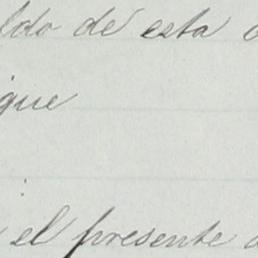 ldo de esta
que
el presente